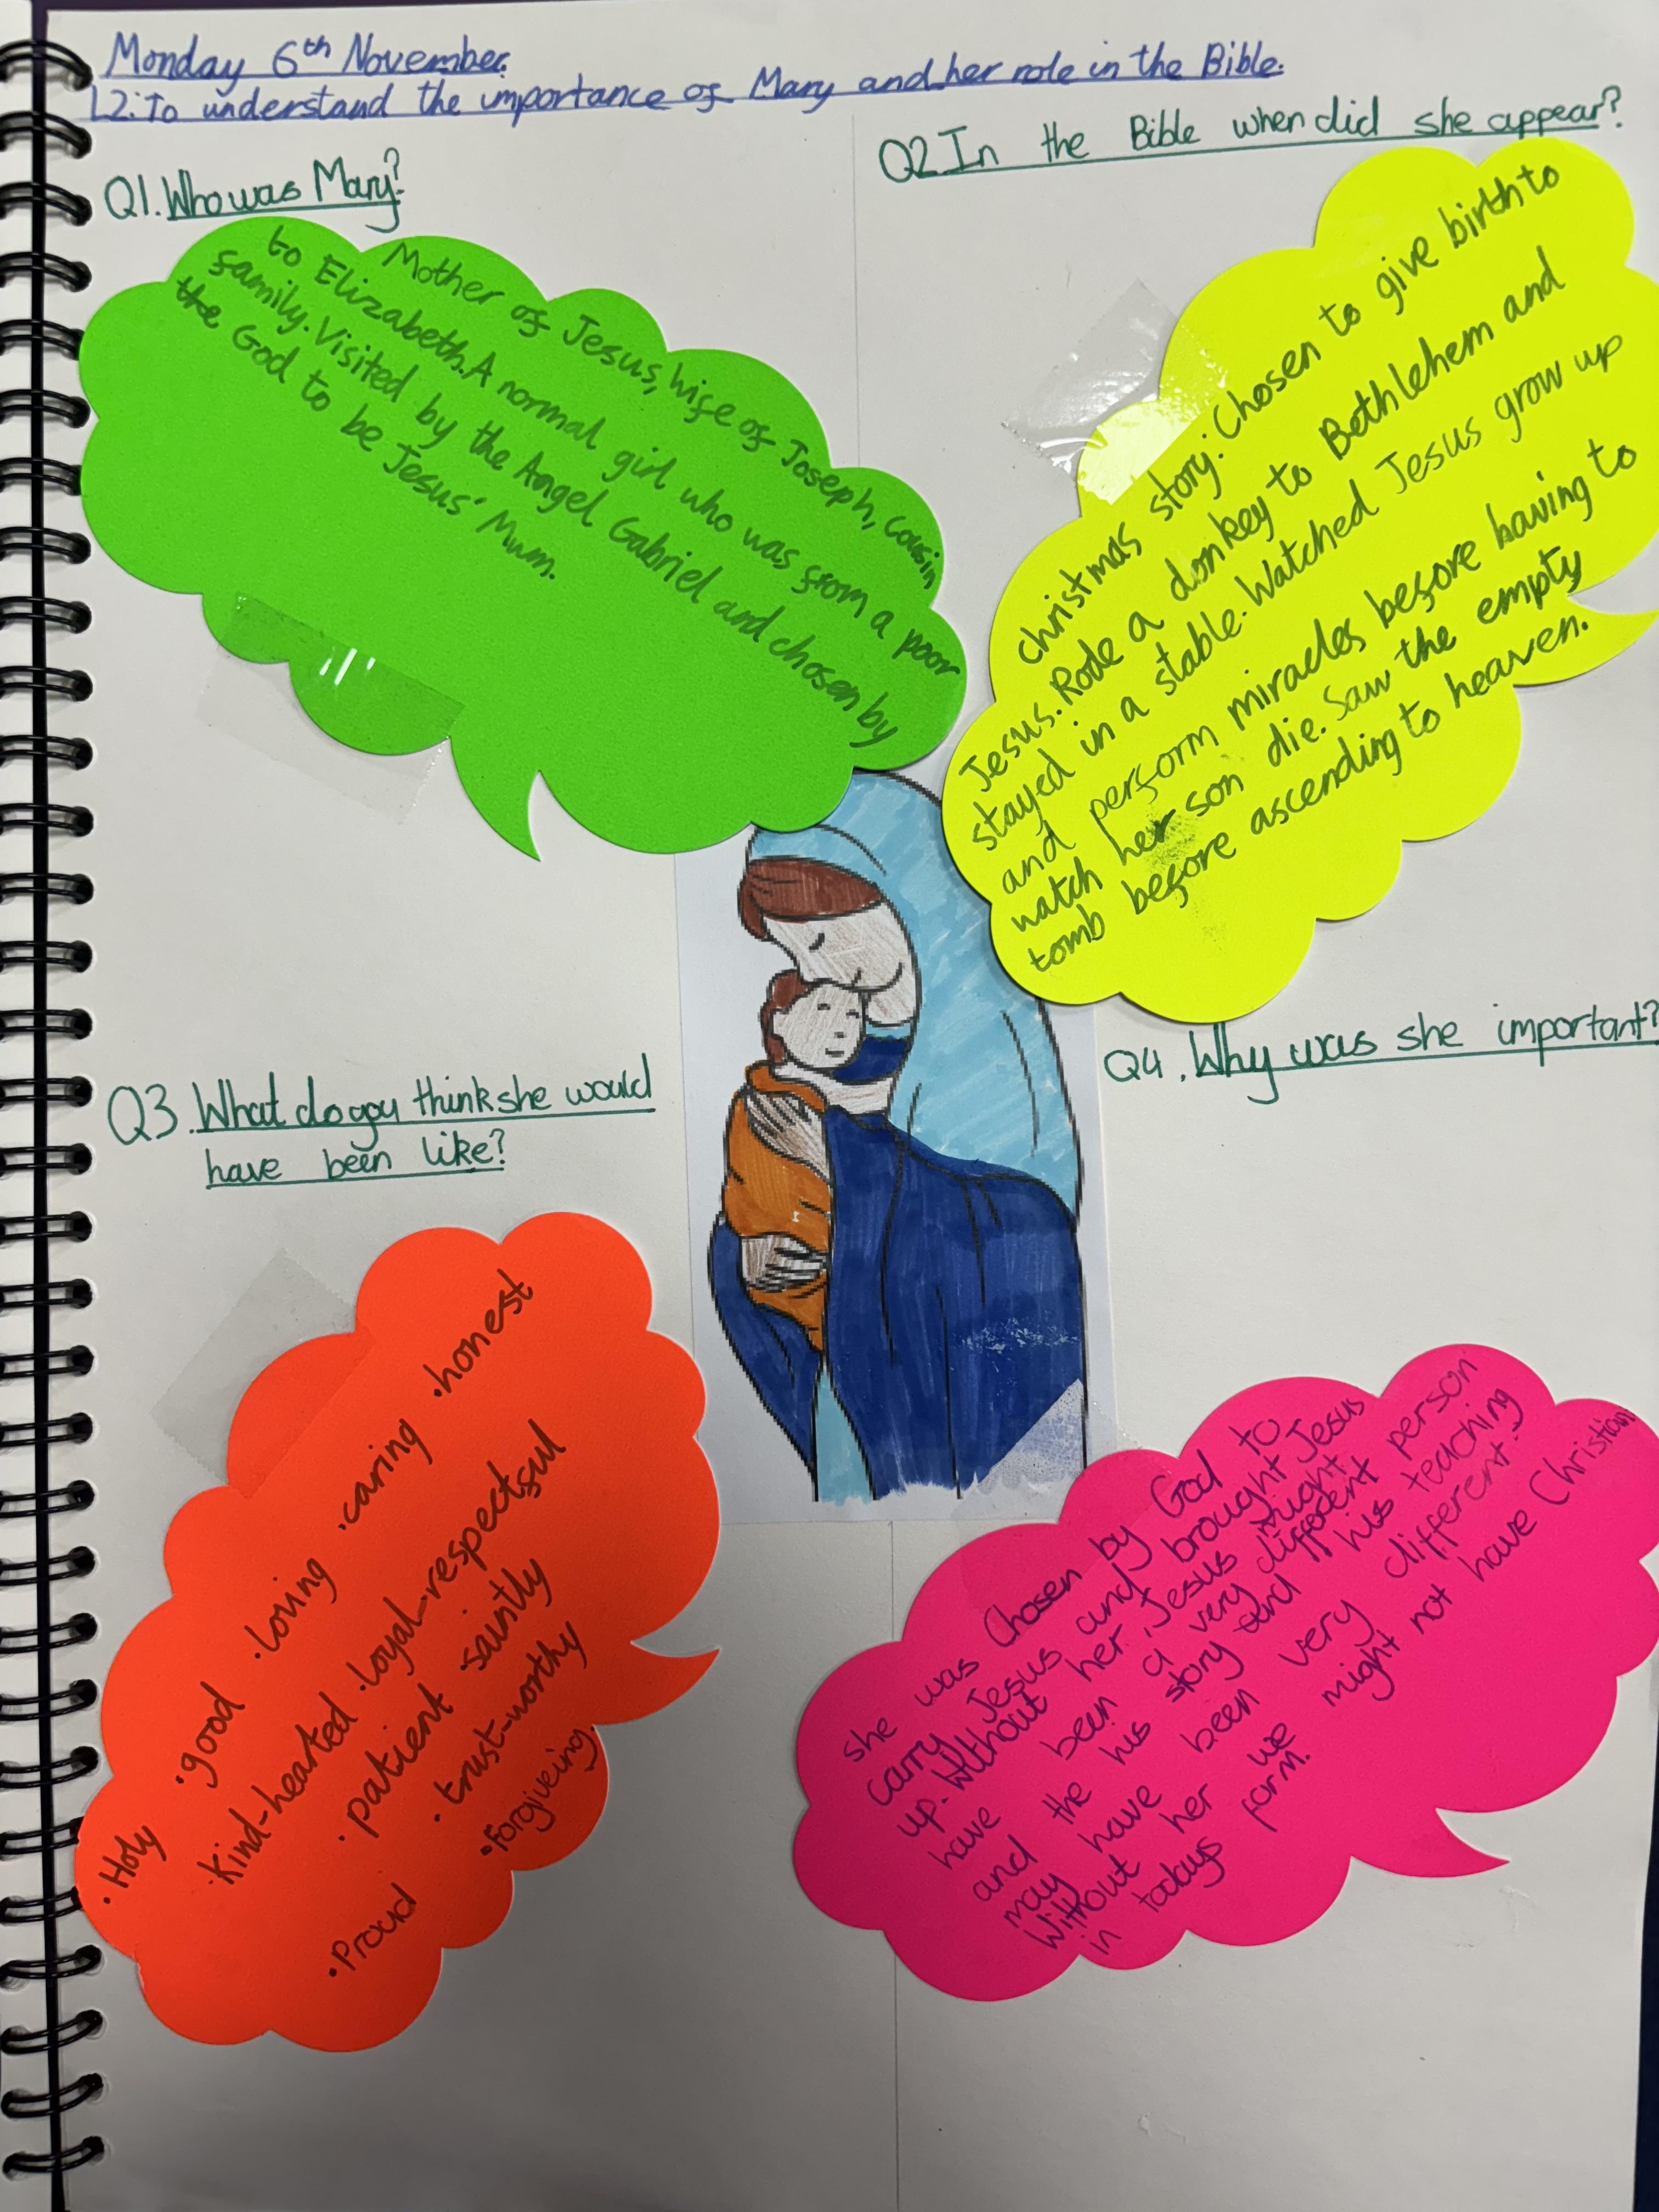 Monday 6th November.
L2: To understand the importance of Mary and her role in the Bible.
Q1. Who was Mary?
Mother of Jesus, wife of Joseph, cousin
to Elizabeth. A normal girl who was from a poor
family. Visited by the Angel Gabriel and chosen by
the God to be Jesus' Mum.
Q2 In the Bible when did she appear?
Christmas story: Chosen to give birth to
Jesus. Rode a donkey to Bethlehem and
stayed in a stable. Watched Jesus grow up
and perform miracles before having to
watch her son die. Saw the empty
tomb before ascending to heaven.
Q3. What do you think she would
have been like?
• Holy • good • loving • caring • honest
• Kind-hearted • loyal - respectful
• patient • saintly
• trust-worthy
• Proud • Forgiveing.
Q4. Why was she important?
She was Chosen by God to
carry Jesus and brought Jesus
up. Without her, Jesus might
have been a very different person
and the his story and his teaching
may have been very different.
Without her we might not have Christian
in todays form.